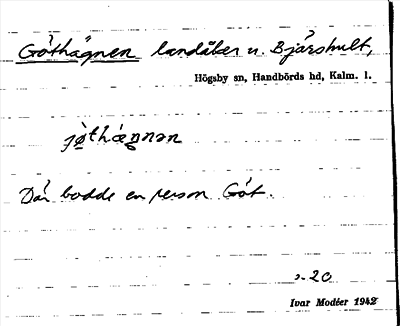 Göthägnen landåker u. Bjärshult,
Högsby sn, Handbörds hd, Kalm. l.
jøthæŋnən
Där bodde en person Göt.
s. 20
Ivar Modéer 1942